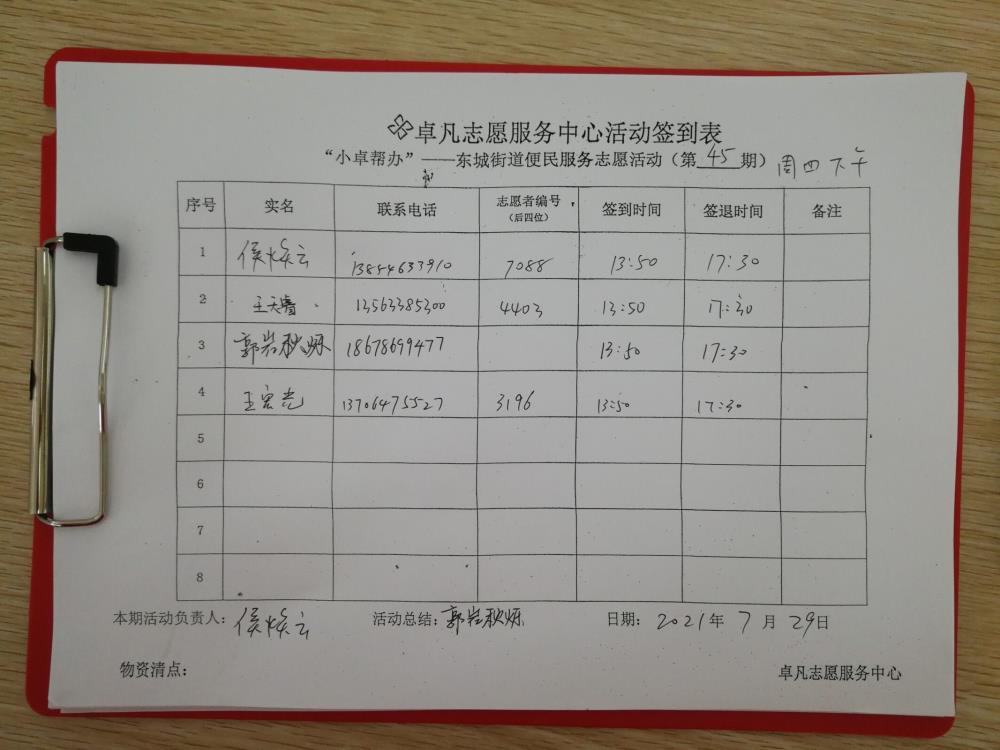 卓凡志愿服务中心活动签到表
“小卓帮办”——东城街道便民服务志愿活动（第 45 期） 周四下午
序号 实名 联系电话 志愿者编号（后四位） 签到时间 签退时间 备注
1 侯焕云 13854633910 7088 13:50 17:30
2 王天睿 13563385300 4403 13:50 17:30
3 郭岩秋烁 18678699477 13:50 17:30
4 王宏光 13706475527 3196 13:50 17:30
5
6
7
8
本期活动负责人：侯焕云 活动总结：郭岩秋烁 日期：2021年 7 月 29日
物资清点： 卓凡志愿服务中心